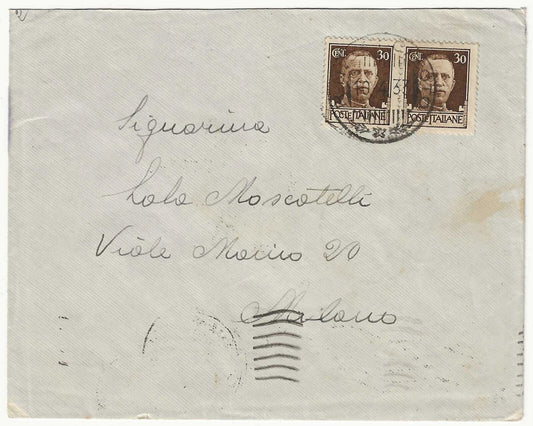 CENT. 30 CENT. 30
POSTE ITALIANE POSTE ITALIANE
Signorina
Lola Moscatelli
Viale Marino 20
Milano